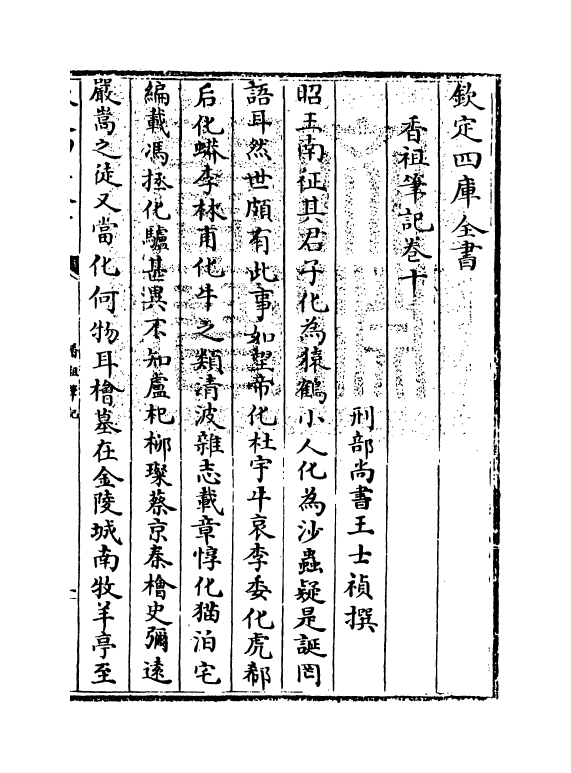 欽定四庫全書
香祖筆記卷十
刑部尚書王士禎撰
昭王南征其君子化為猿鶴小人化為沙蟲疑是誕罔
語耳然世頗有此事如望帝化杜宇牛哀李委化虎郗
后化蟒李林甫化牛之類清波雜志載章惇化猫泊宅
編載馮拯化驢甚異不知盧杞柳璨蔡京秦檜史彌遠
嚴嵩之徒又當化何物耳檜墓在金陵城南牧羊亭至
香祖筆記